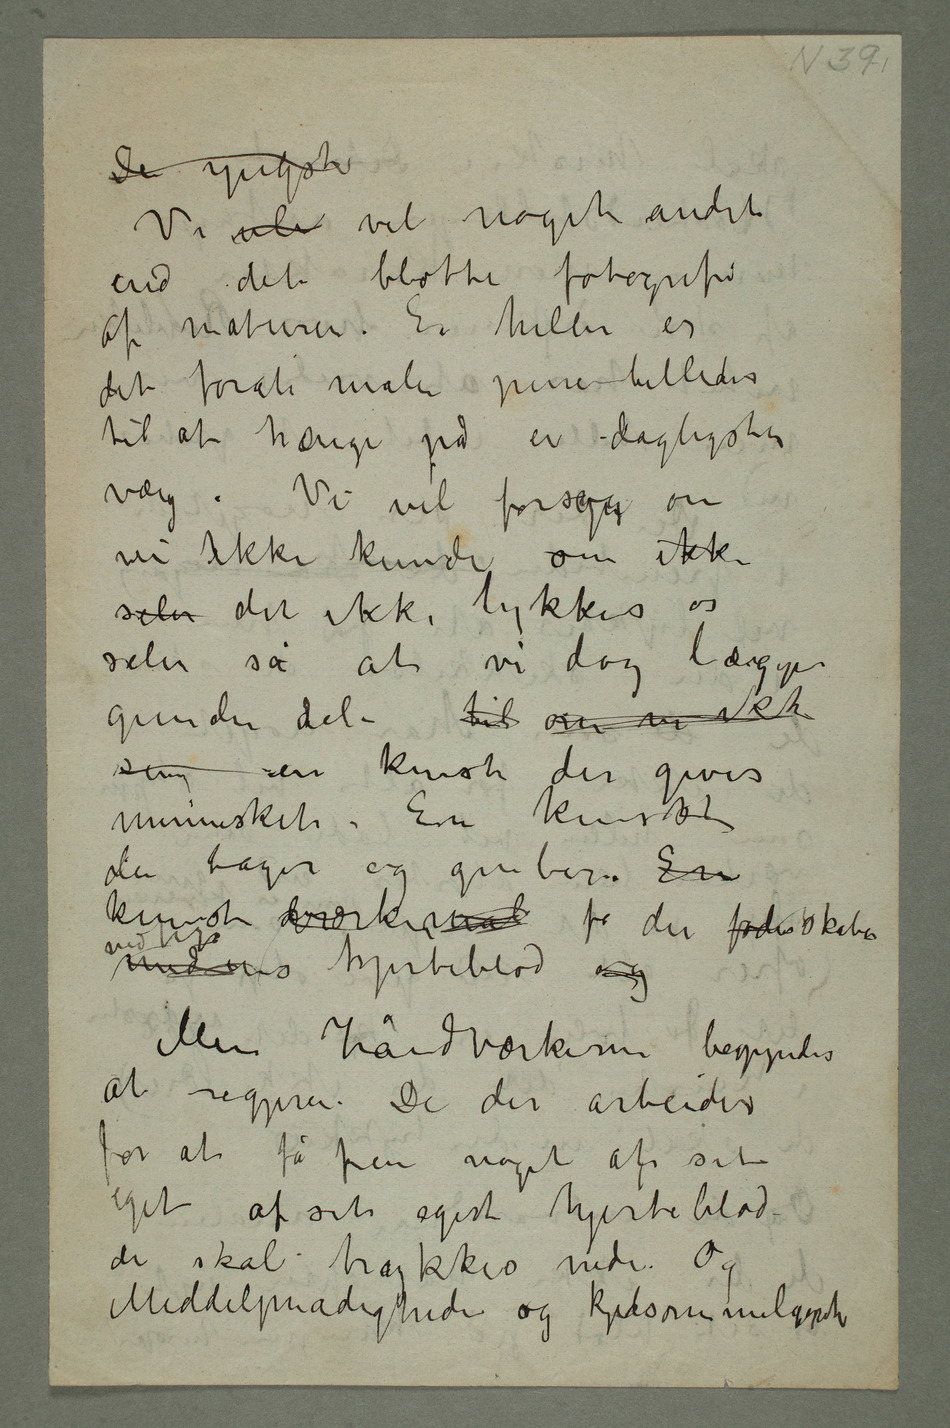 N 39,
De yngste
Vi vile vil noget andet
end det blotte fotografi
af naturen. Ei heller er
det forat male pene billeder
til at hænge på en dagligstu
væg. Vi vil forsøge om
vi ikke kunde om ikke
selv det ikke lykkes os
selv så at vi dog lægger
grunden del til om vi ikke
en kunst der gives
mennesket. En kunst
der tager og griber. En
kunst der skabes
med ens hjerteblod og
Men håndværkerne begynder
at regjere. De der arbeider
for at få frem noget af sit
eget af sit eget hjerteblod
de skal trækkes ned. Og
Middelmådigheden og